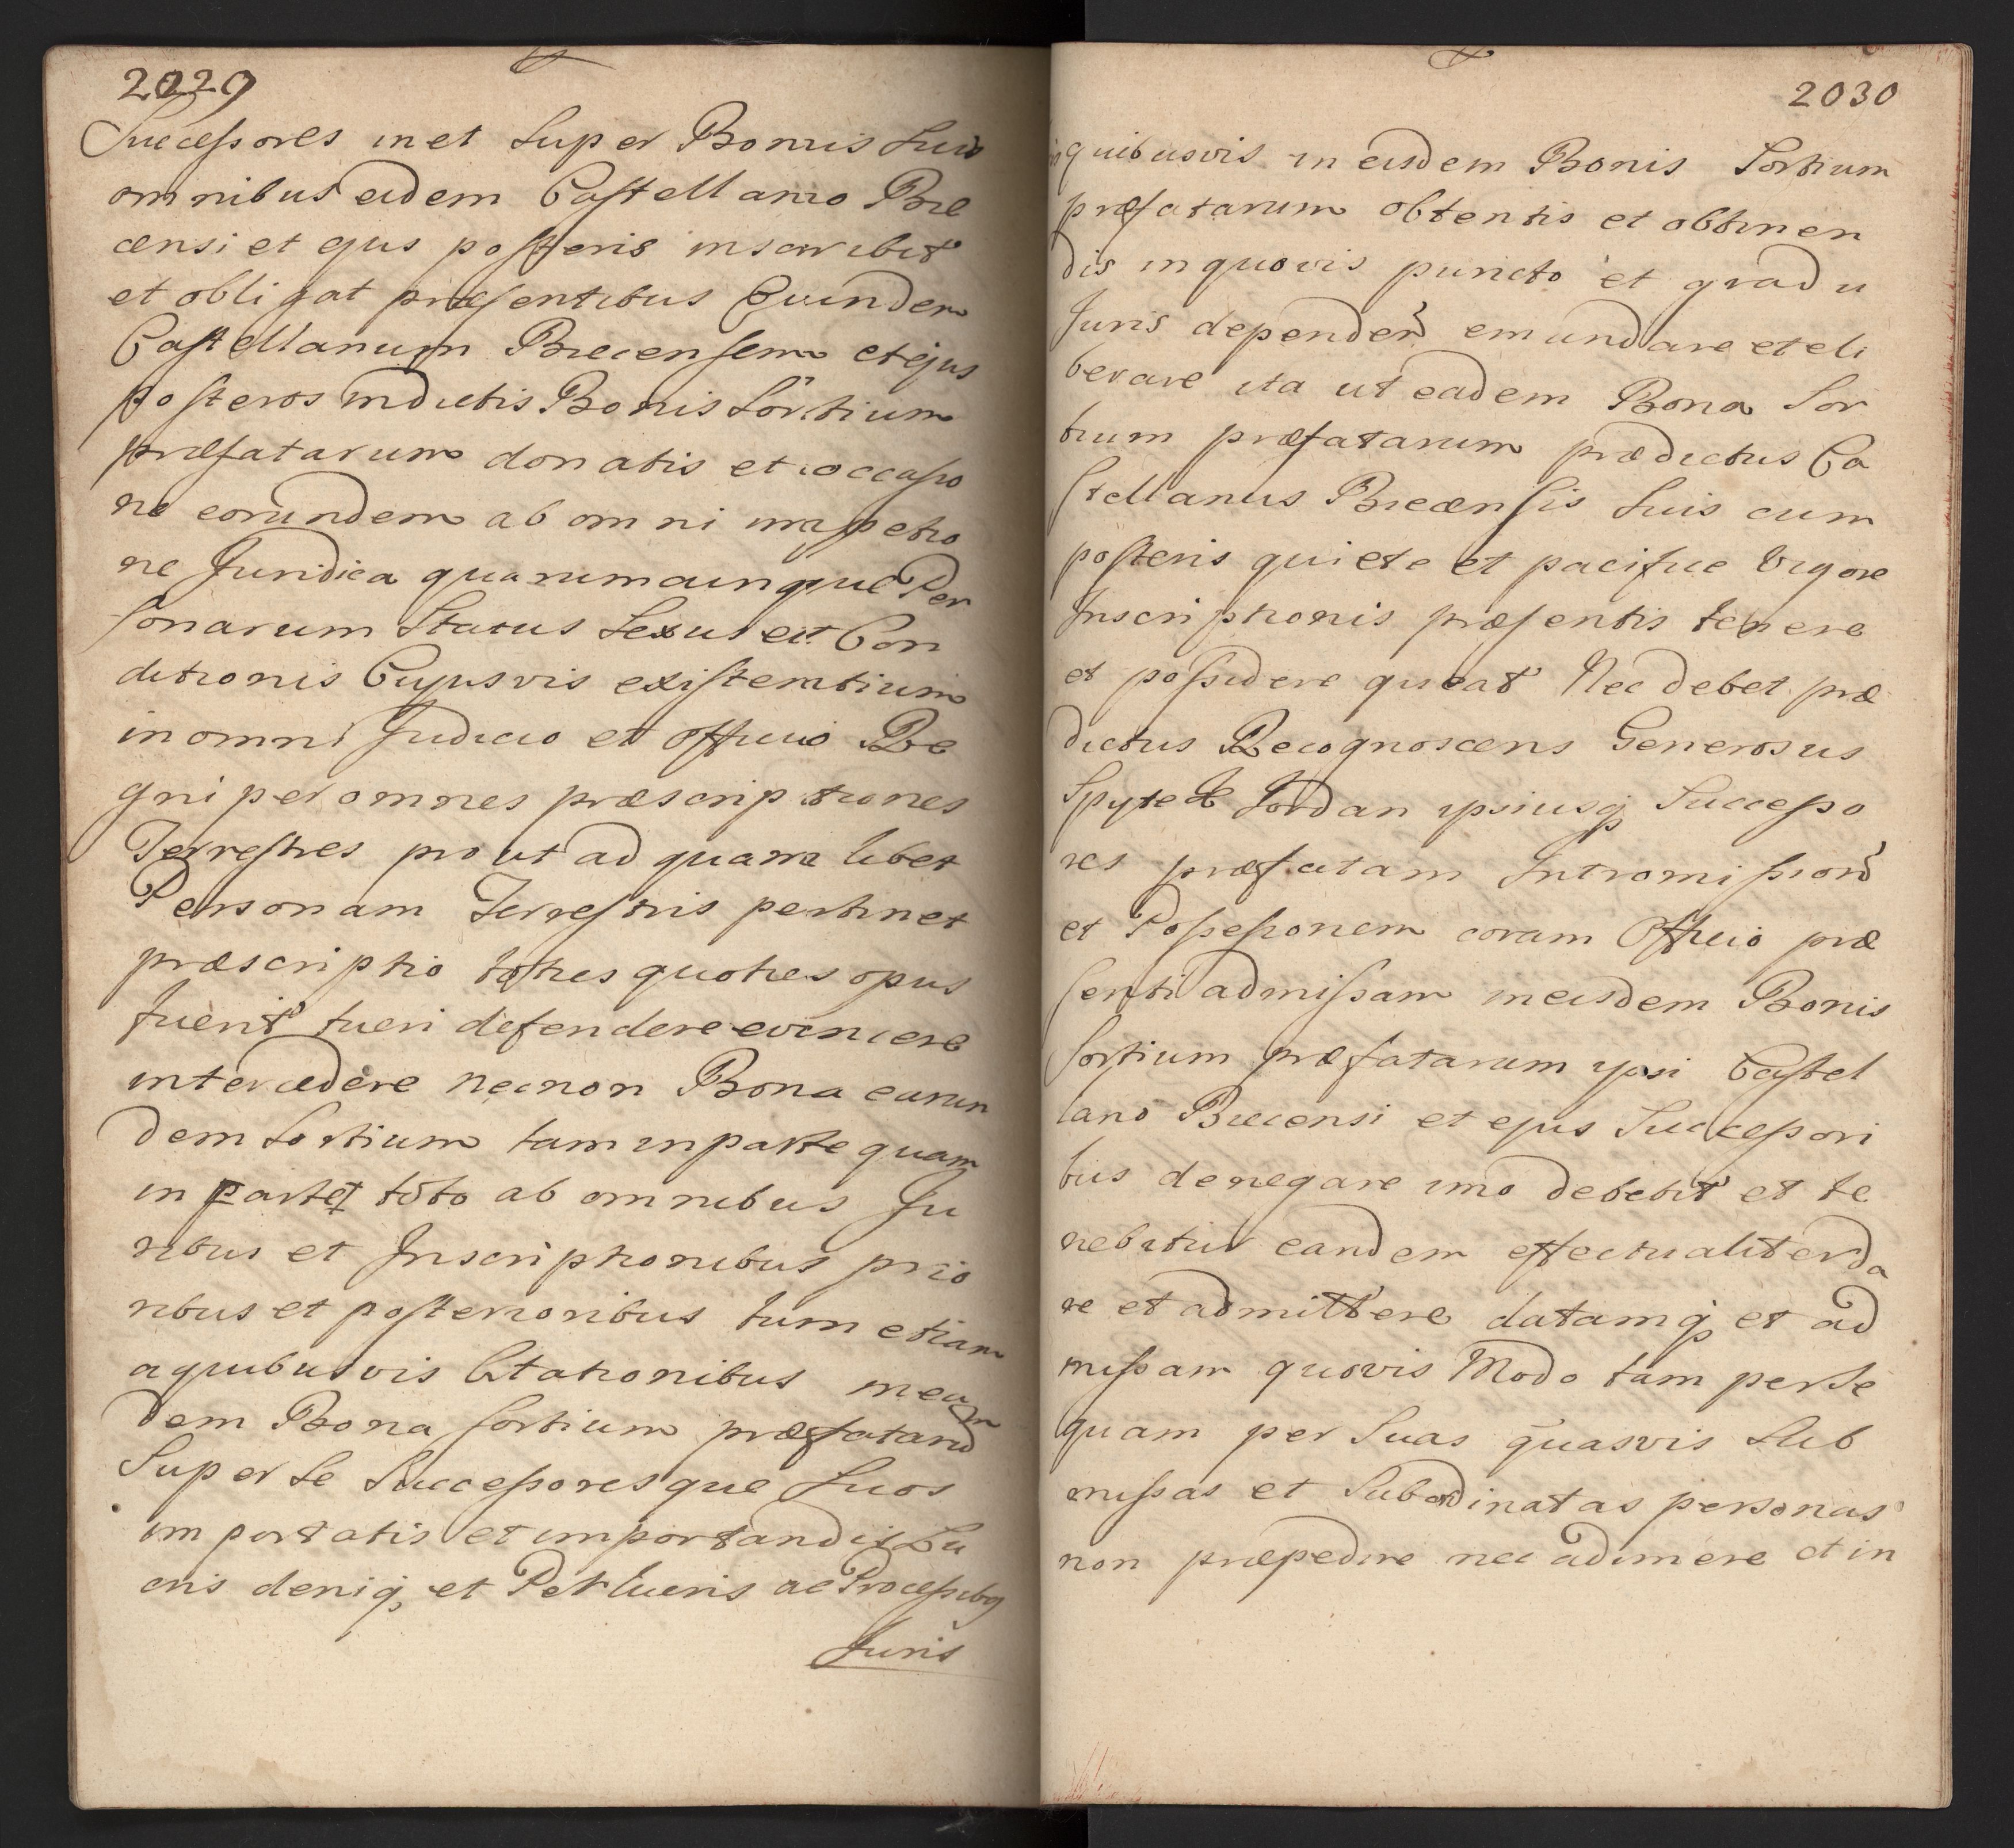 2029
Successores in et super Bonis suis
omnibus eidem Castellano Bie
censi et ejus posteris inscribit
et obligat præsentibus Eundem
Castellanum Biecensem et ejus
posteros in dictis Bonis Sortium
præfatarum donatis et occasio
ne eorundem ab omni impetio
ne Juridica quarumcunque Per
sonarum Status Sexus et Con
ditionis Cujusvis existentium
in omni Judicio et Officio Re
gni per omnes præscriptiones
Terrestres prout ad quam libet
Personam Terrestris pertinet
præscriptio toties quoties opus
fuerit tueri defendere evincere
intercedere necnon Bona earun
dem Sortium tam in parte quam
in toto ab omnibus Ju
ribus et Inscriptionibus prio
ribus et posterioribus tum etiam
a quibusvis Citationibus in ea
dem Bona sortium præfatarũ
Super se Successoresque Suos
importatis et importandis Lu
cris deniq; et Perlucris ac Processibq
Juris
2030
in quibusvis in eisdem Bonis Sortium
præfatarum obtentis et obtinen
dis in quovis puncto et gradu
Juris dependeñ emundare et eli
berare ita ut eadem Bona Sor
tium præfatarum prædictus Ca
stellanus Biecensis Suis cum
posteris quiete et pacifice Vigore
Inscriptionis præsentis tenere
et possidere queat Nec debet præ
dictus Recognoscens Generosus
Spytek Jordan ipsiusq; Successo
res præfatam Intromissionẽ
et Possessionem coram Officio præ
senti admissam in eisdem Bonis
Sortium præfatarum ipsi Castel
lano Biecensi et ejus Successori
bus denegare imo debebit et te
nebitur eandem effectualiter da
re et admittere datamq; et ad
missam quovis Modo tam per se
quam per Suas quasvis Sub
missas et Subordinatas personas
non præpedire nec adimere et in